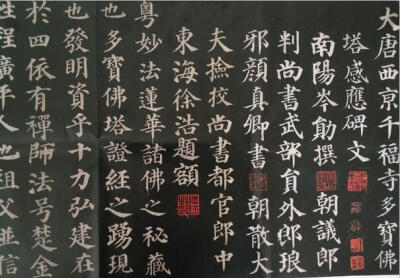 大唐西京千福寺多寶佛
塔感應碑文
南陽岑勛撰 朝議郎
判尚書武部員外郎琅
邪顏真卿書 朝散大
夫撿校尚書都官郎中
東海徐浩題額
粵妙法蓮華諸佛之秘藏
也多寶佛塔證經之踴現
也發明資乎十力弘建在
於四依有禪師法号楚金
姓程廣平人也祖父並信